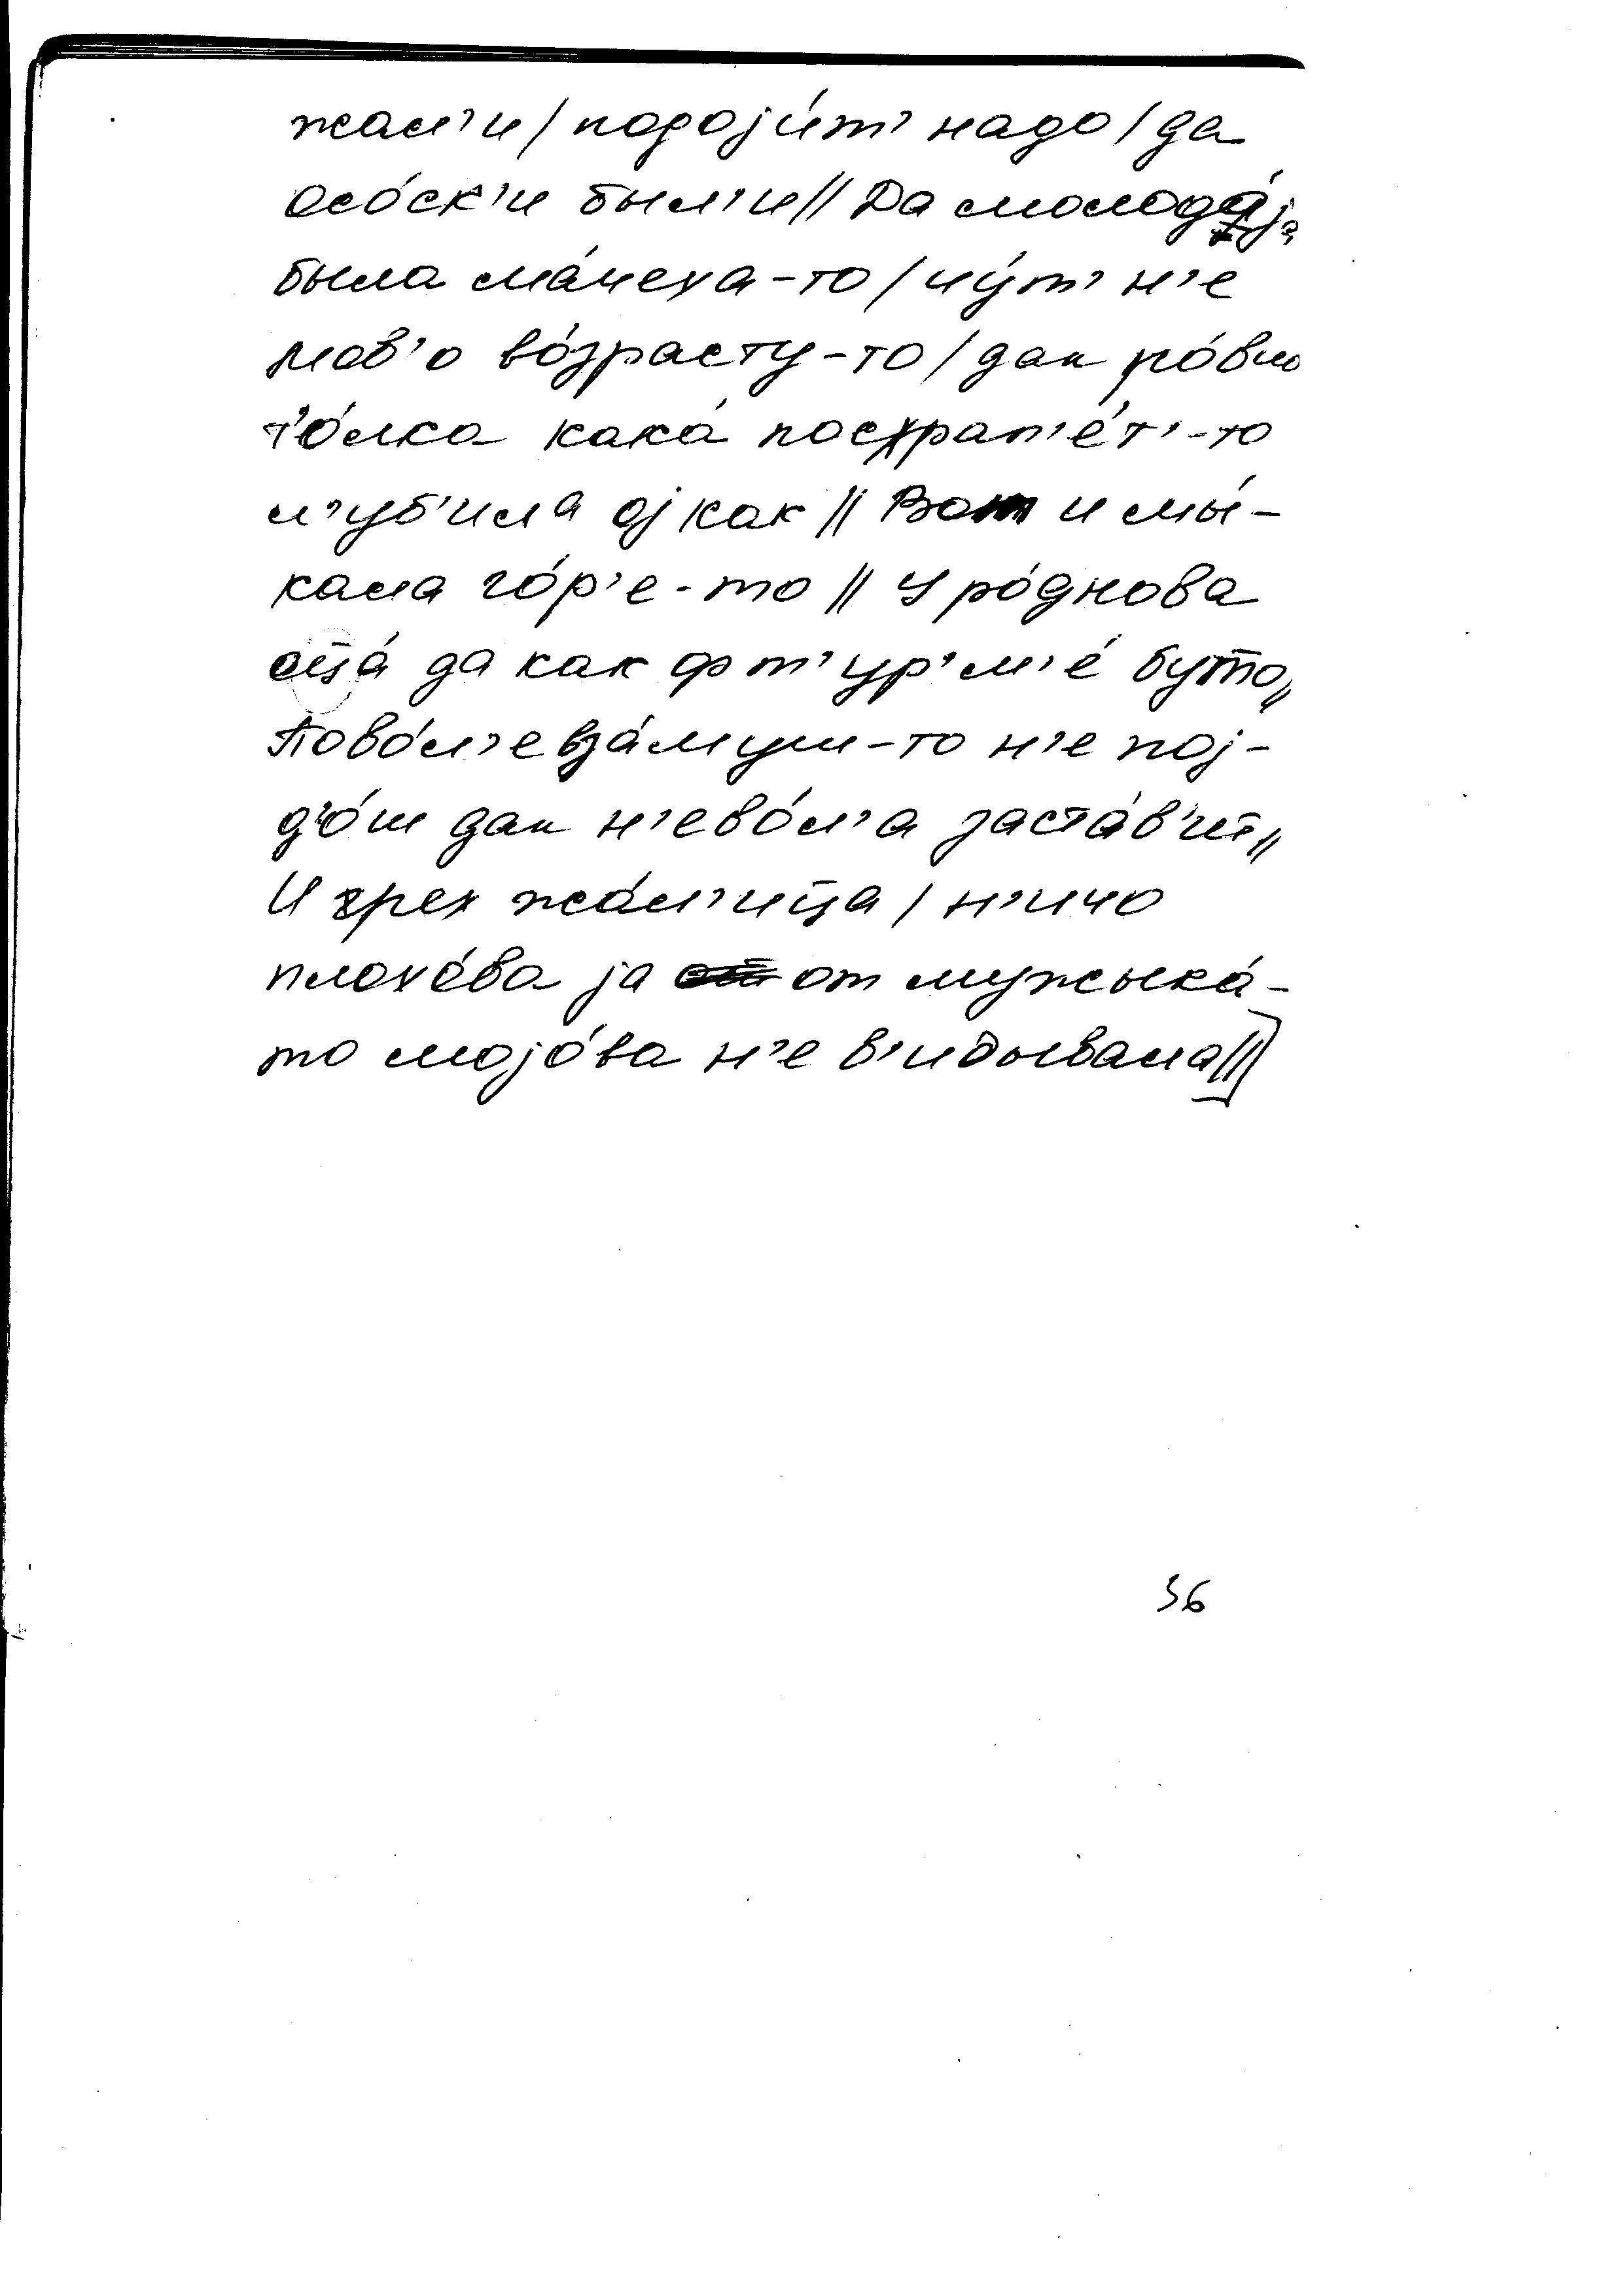 жал'и / подоjи́т' надо / да
осо́ск'и был'и // Да молода́jа
была ма́чеха-то / чу́т' н'е
мов'о во́зрасту-то / дак ро́вно
т'о́лка кака́ посхрап'е́т'-то
л'уб'ила оj как // Вот и мы́-
кала го́р'е-то // У ро́днова
отца́ да как ф т'ур'м'е́ буто //
Пово́л'е вза́муш-то н'е поj-
д'о́ш дак н'ево́л'а заста́в'ит //
И грех жа́л'ица / н'ичо
плохо́ва jа от мужыка́-
то моjо́ва н'е в'идывала ///
36